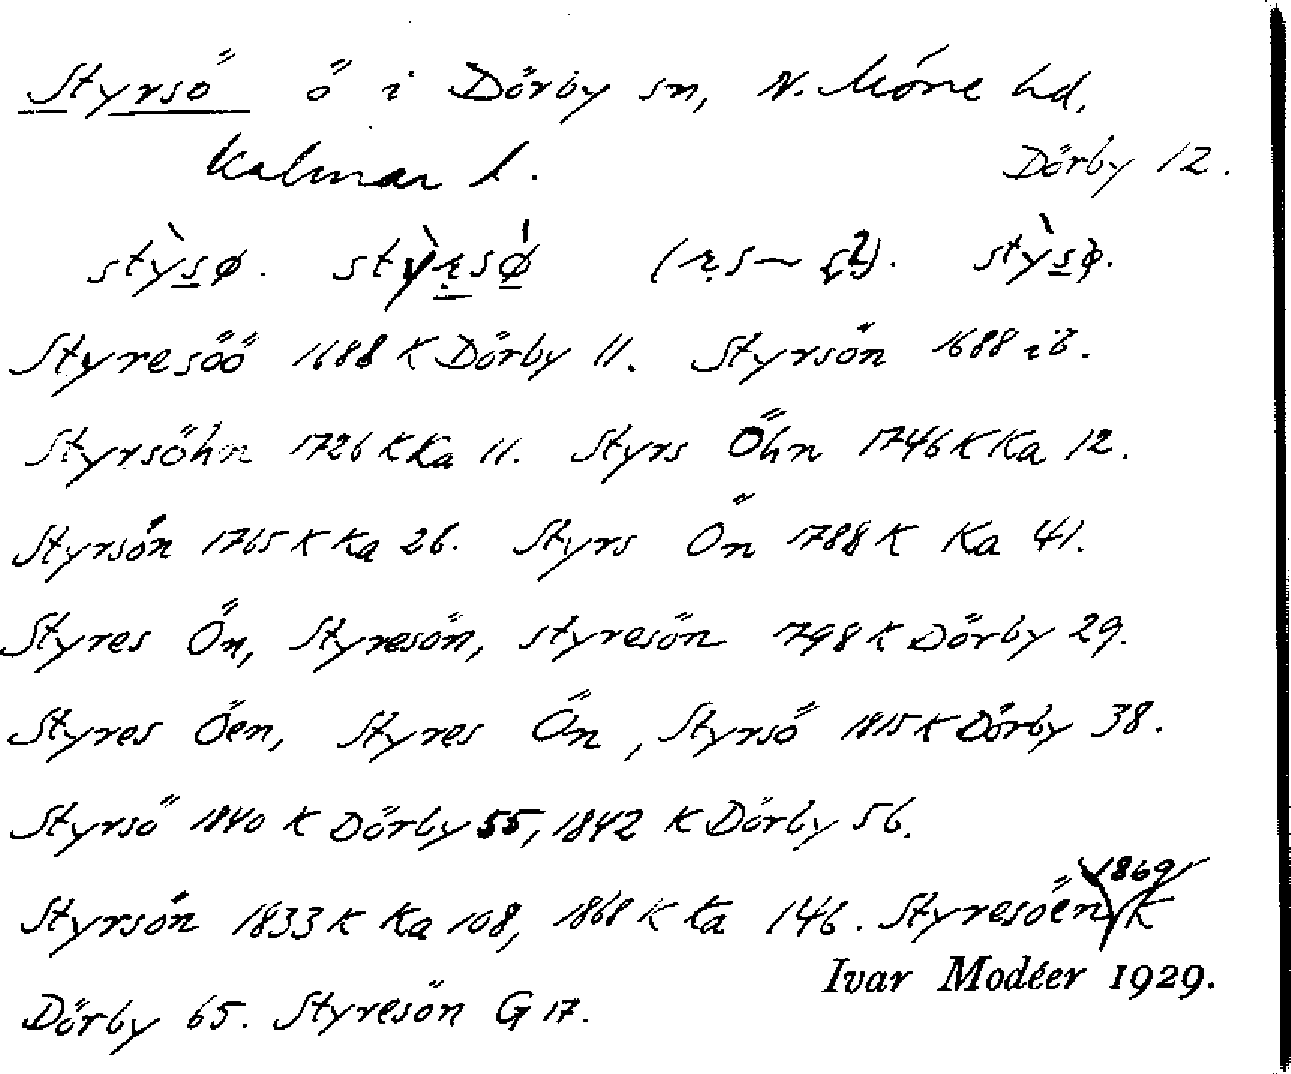 Styrsö ö i Dörby sn, N. Möre hd,
Kalmar l.
Dörby 12.
stỳsø.
Styresöö 1688 K Dörby 11. Styrsön 1688 ib.
Styrsöhn 1726 K Ka 11. Styrs Öhn 1746 K Ka 12.
Styrsön 1765 K Ka 26. Styrs Ön 1788 K Ka 41.
Styres Ön, Styresön, styresön 1798 K Dörby 29.
Styres Öen, Styres Ön, Styrsö 1815 K Dörby 38.
Styrsö 1840 K Dörby 55, 1842 K Dörby 56.
Styrsön 1833 K Ka 108, 1868 K Ka 146. Styresöen 1869 K
Ivar Modéer 1929.
Dörby 65. Styresön G 17.